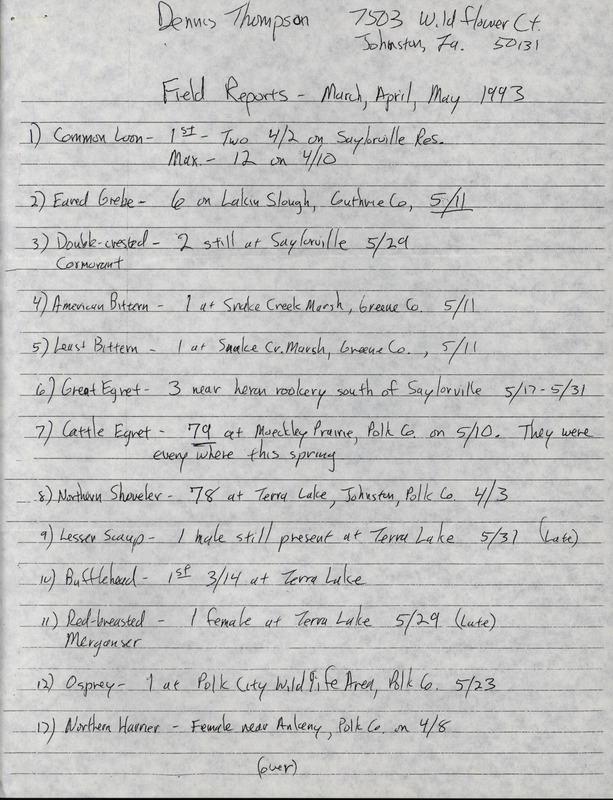 Dennis Thompson 7503 Wildflower Ct.
Johnston, Ia. 50131
Field Reports - March, April, May 1993
1) Common Loon - 1st - Two 4/2 on Saylorville Res.
Max. - 12 on 4/10
2) Eared Grebe - 6 on Lakin Slough, Guthrie Co, 5/11
3) Double-crested - 2 still at Saylorville 5/29
Cormorant
4) American Bittern - 1 at Snake Creek Marsh, Greene Co. 5/11
5) Least Bittern - 1 at Snake Cr. Marsh, Greene Co., 5/11
6) Great Egret - 3 near heron rookery south of Saylorville 5/17 - 5/31
7) Cattle Egret - 79 at Moeckley Prairie, Polk Co. on 5/10. They were
every where this spring
8) Northern Shoveler - 78 at Terra Lake, Johnston, Polk Co. 4/3
9) Lesser Scaup - 1 male still present at Terra Lake 5/31 (Late)
10) Bufflehead - 1st 3/14 at Terra Lake
11) Red-breasted - 1 female at Terra Lake 5/29 (Late)
Merganser
12) Osprey - 1 at Polk City Wildlife Area, Polk Co. 5/23
13) Northern Harrier - Female near Ankeny, Polk Co. on 4/8
(over)